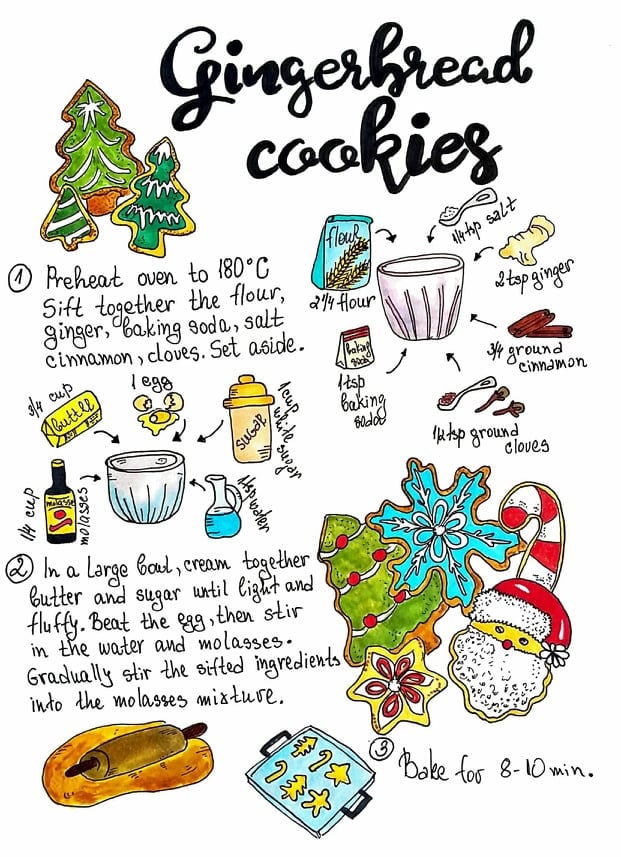 Gingerbread
cookies
1 Preheat oven to 180°C
Sift together the flour,
ginger, baking soda, salt
cinnamon, cloves. Set aside.
flour
2 1/4 flour
1/4 tsp salt
2 tsp ginger
3/4 ground
cinnamon
1/4 tsp ground
cloves
baking
soda
1 tsp
baking
soda
3/4 cup
butter
1 egg
SUGAR
1 cup
white sugar
1/4 cup
molasses
molasses
1 tsp water
2 In a large bowl, cream together
butter and sugar until light and
fluffy. Beat the egg, then stir
in the water and molasses.
Gradually stir the sifted ingredients
into the molasses mixture.
3 Bake for 8-10 min.